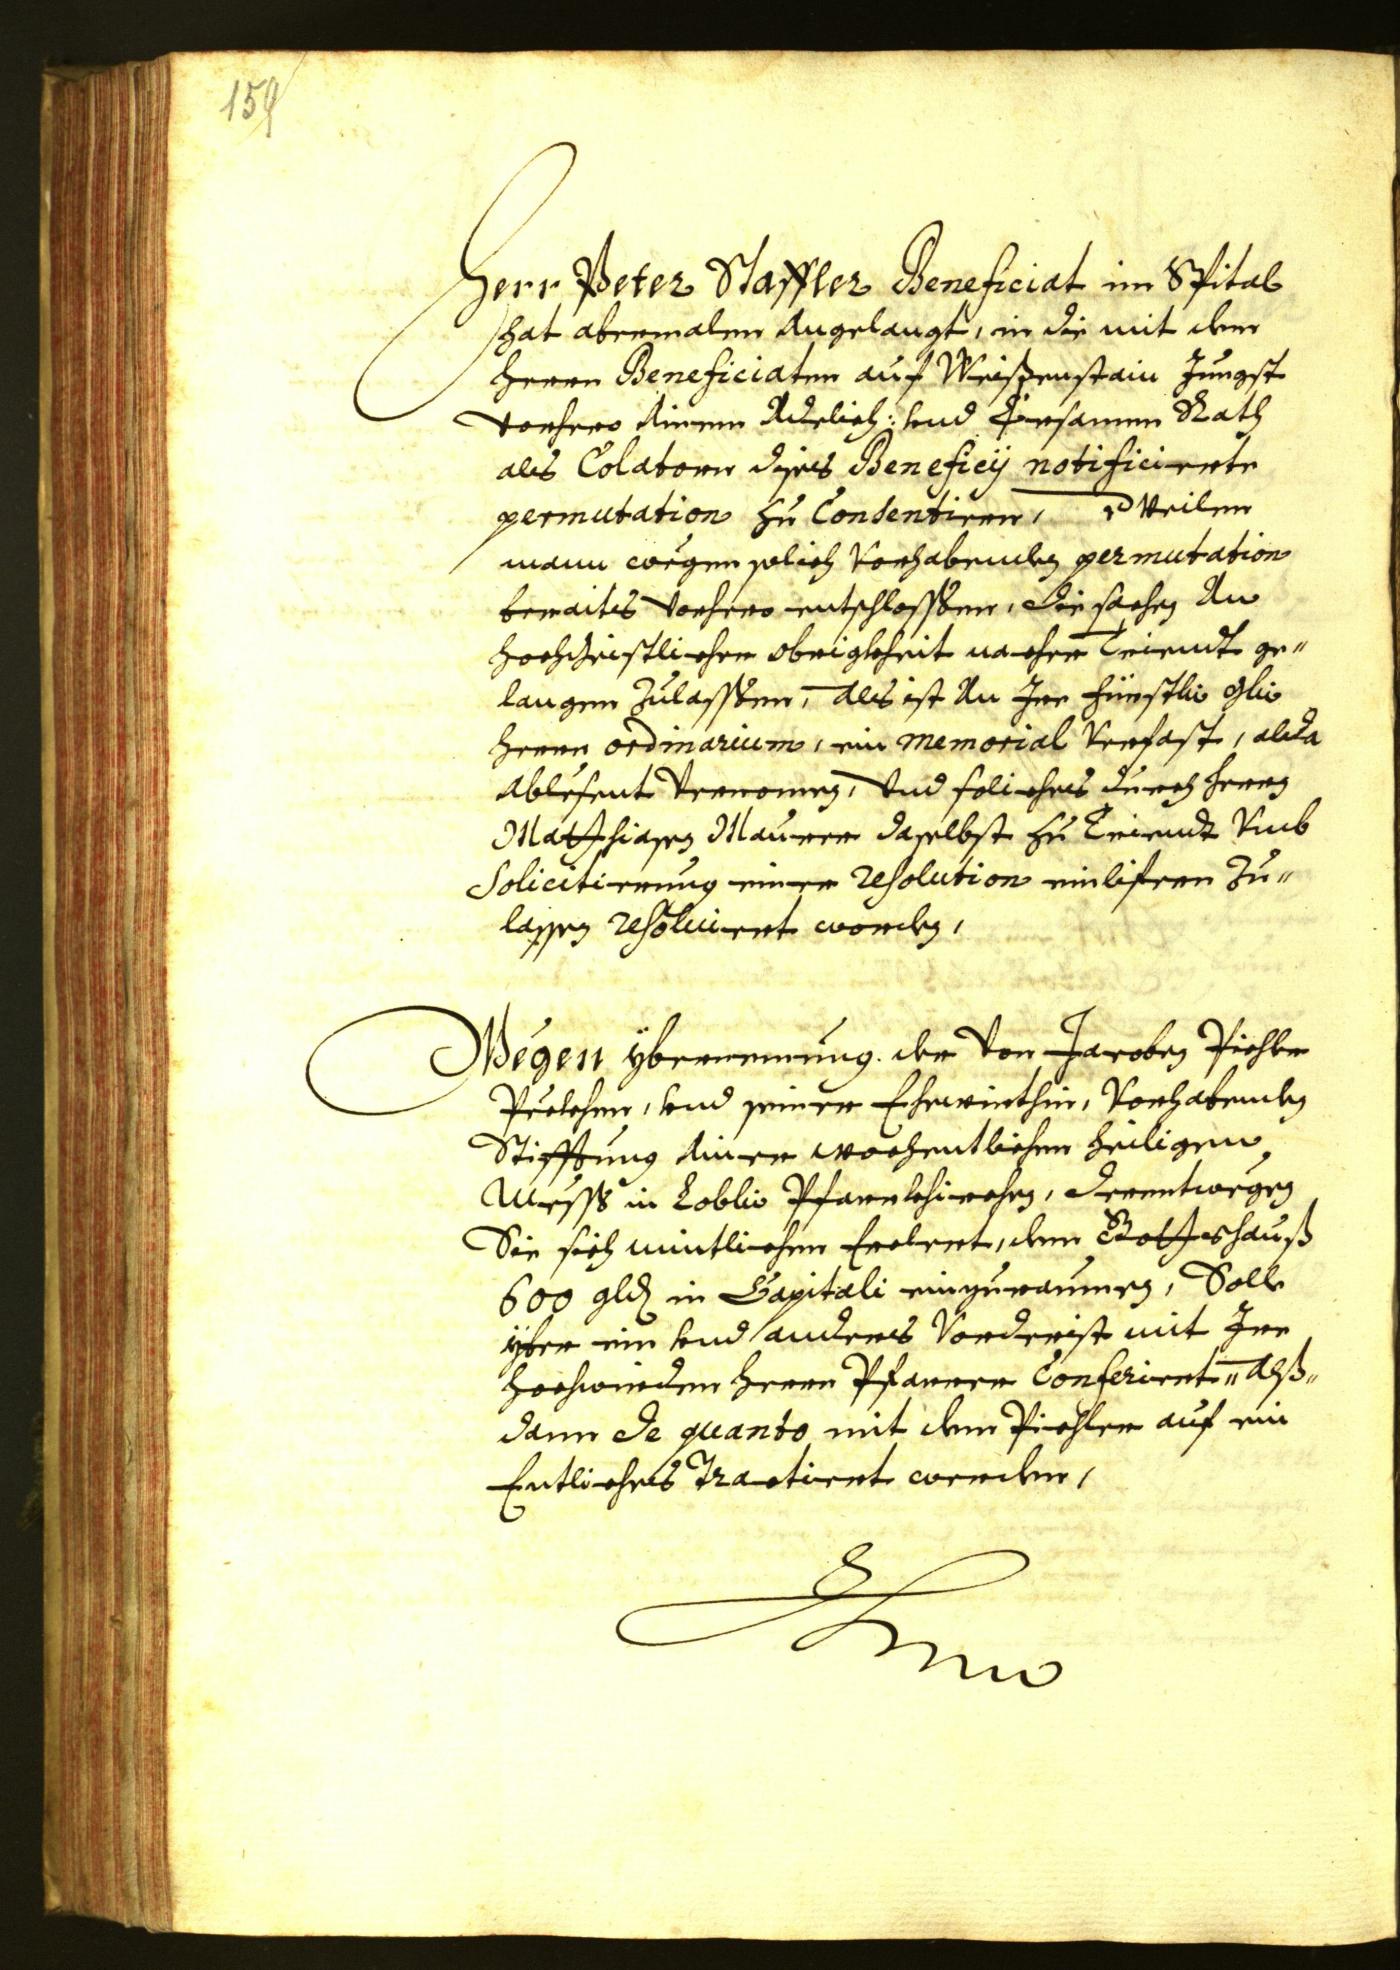 159
Herr Peter Staffler Beneficiat im Spital
hat abermalen Angelangt, in die mit dem
Herrn Beneficiaten auf Weißenstain Jungst
vorhero Ainem Adelich: und Ersamen Rath
als Colatorn dises Beneficÿ notificierte
permutation zu Consentieren, Weilen
mann wegen solich Vorhabenden permutation
beraits vorhero entschlossen, die sachen An
hochgeistlicher obrigkheit nacher Triendt ge„
langen zulassen, Als ist An Ire fürstlic glic
herrn ordinarium, ein memorial Verfast, alda
Ablesent Vernomen, Und soliches durch herrn
Mathiasen Maurer daselbst zu Triendt Umb
Solicitierung einer resolution einlifern zu„
lassen resoluiert worden,
Wegen ÿbernemung der Von Jacoben Pichler
Pekhen, und seiner Ehewirthin, Vorhabenden
Stifftung Ainer wochentlichen heiligen
Mess in Loblic Pfarrkhirchen, derentwegen
Sie sich mintlichen Erclert, dem Gottshauß
600 gld in Capitali einzuraumen, Solle
yber ein und anders Vorderist mit Irr
hochwürden herrn Pfarrer Conferiert„ Alß„
dann de quanto mit dem Pichler auf ein
Entliches Tractiert werden,